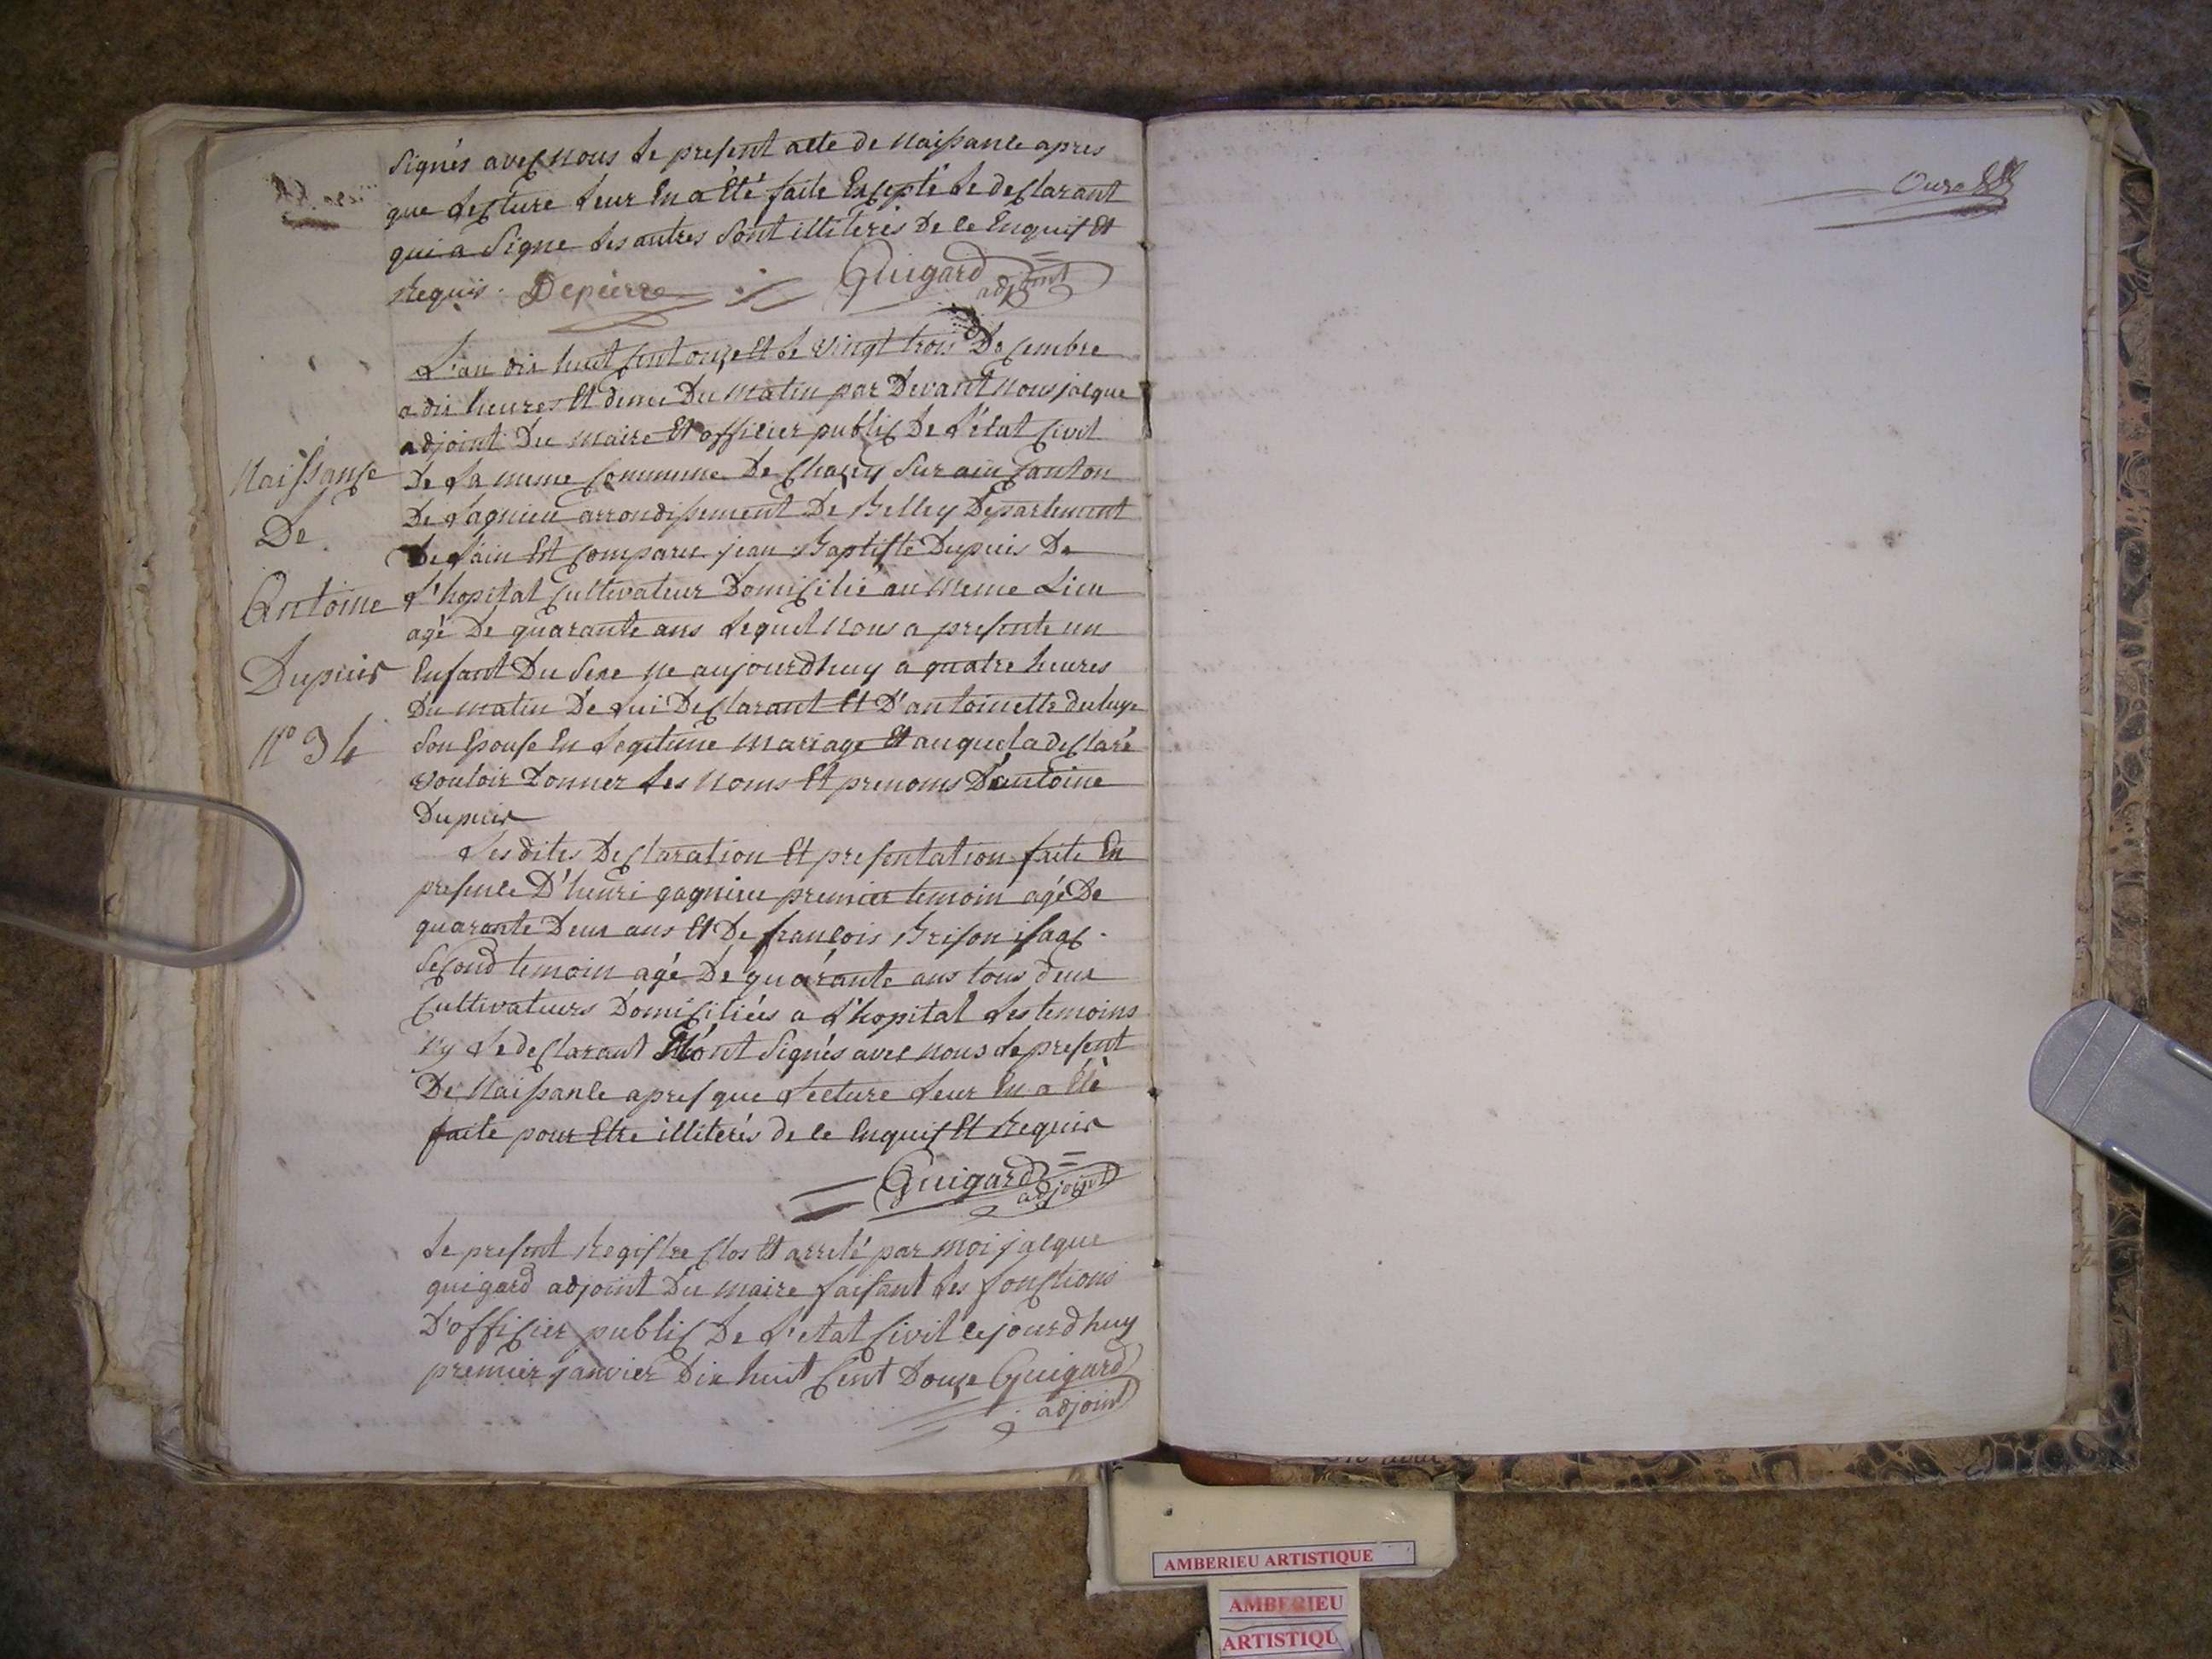 signés avec nous le present acte de naissance apres
que lecture leur en a été faite excepté le declarant
qui a signe les autres sont illiterés de ce enquis et
requis. Depierre Guigard adjoint
L'an dix huit cent onze et le vingt trois Decembre
a dix heures et demie Du matin par Devant nous jacque
adjoint Du maire et officier public De l'état civil
De la meme commune De Chazey sur ain canton
De Lagnieu arrondissement De Belley Departement
De l'ain Est comparu jean Baptiste Dupuis De
l'hopital cultivateur Domicilié au meme Lieu
agé De quarante ans lequel nous a presente un
Enfant Du sexe ne aujourdhuy a quatre heures
Du matin De lui Declarant et D'antoinette
son Epouse En legitime mariage et auquel a declaré
vouloir Donner les noms et prenoms D'antoine
Dupuis
Naissance
De
Antoine
Dupuis
n° 34
Les dites Declaration et presentation faite En
presence D'henri gagnieu premier temoin agé De
quarante Deux ans et De françois Brison isaac
second temoin agé De quarante ans tous deux
cultivateurs Domiciliées a l'hopital les temoins
ny le declarant n'ont signés avec nous le present
De Naissance apres que lecture leur en a été
faite pour Etre illiterés de ce enquis et requis
Guigard adjoint
Le present registre clos et arreté par moi jacque
guigard adjoint Du maire faisant les fonctions
D'officier public De l'etat civil cejourdhuy
premier janvier Dix huit cent Douze Guigard
adjoint
AMBERIEU ARTISTIQUE
AMBERIEU
ARTISTIQU